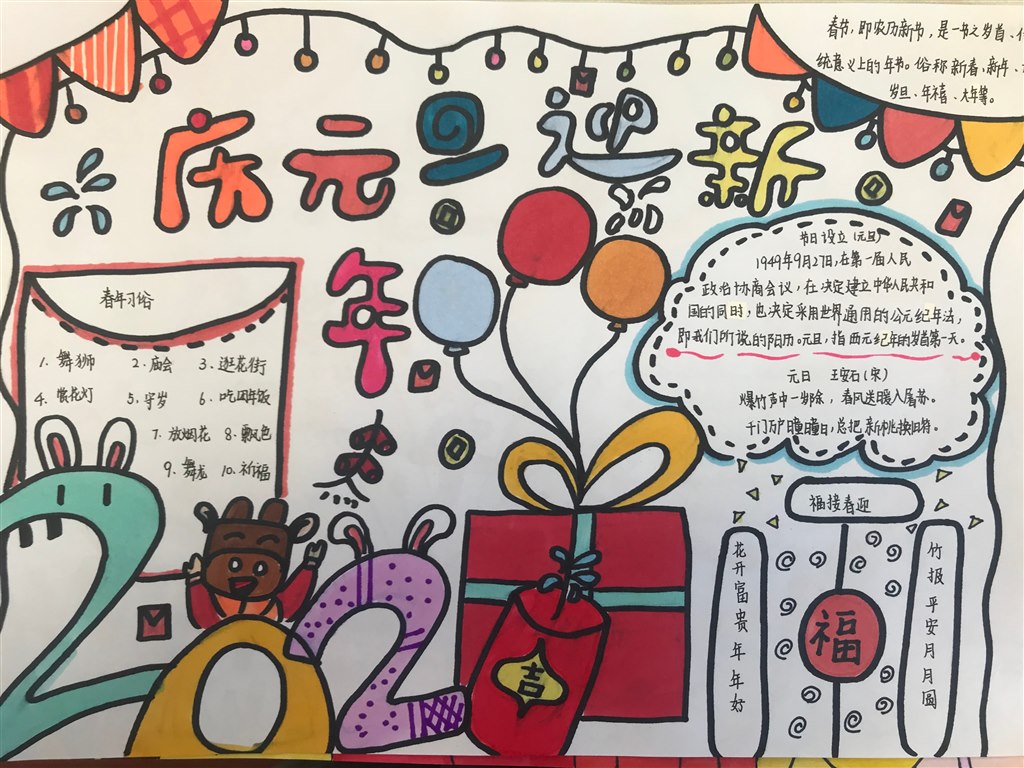 春节，即农历新节，是一岁之岁首、传
统意义上的年节。俗称新春、新年、
岁旦、年禧、大年等。
庆元旦迎新
年
春年习俗
1. 舞狮 2. 庙会 3. 逛花街
4. 赏花灯 5. 守岁 6. 吃团年饭
7. 放烟花 8. 飘色
9. 舞龙 10. 祈福
节日设立(元旦)
1949年9月27日,在第一届人民
政治协商会议，在决定建立中华人民共和
国的同时,也决定采用世界通用的公元纪年法,
即我们所说的阳历。元旦，指西元纪年的岁首第一天。
元日 王安石(宋)
爆竹声中一岁除，春风送暖入屠苏。
千门万户曈曈日,总把新桃换旧符。
福接春迎
花开富贵年年好
竹报平安月月圆
福
吉
202